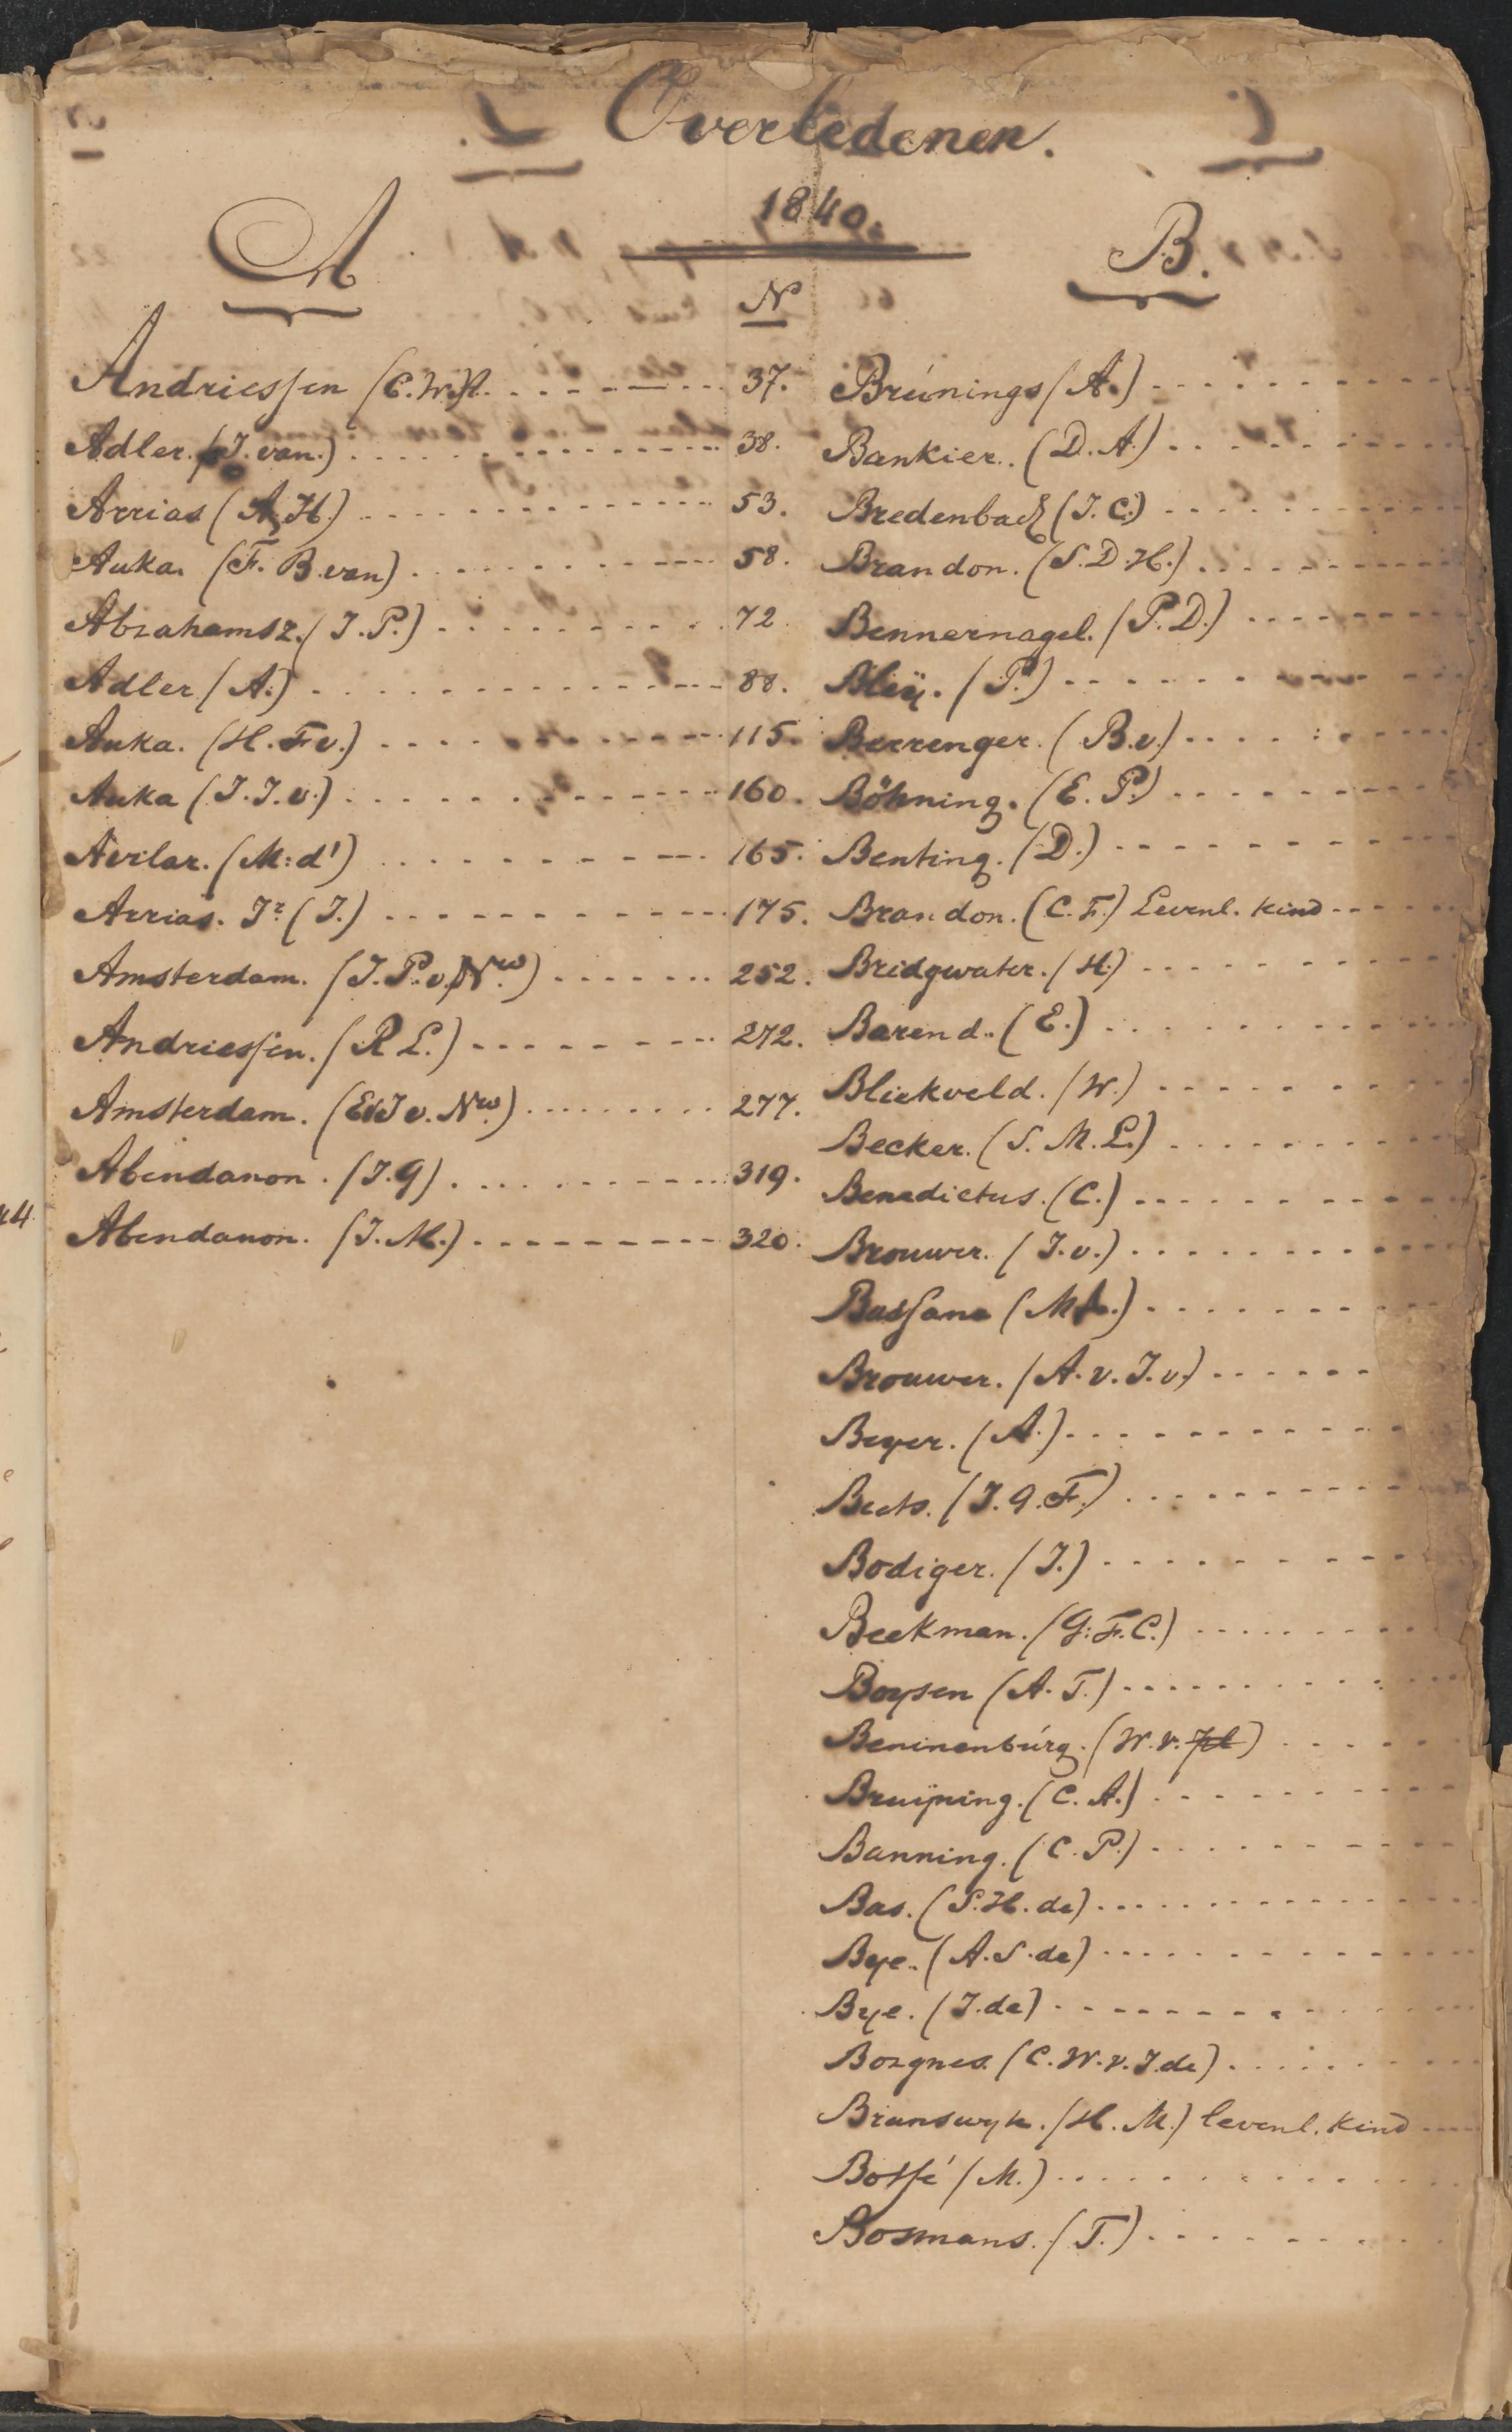 Overledenen.
1840.
A
N
Andriessen (C.W.R. 37.
Adler. (J. van.) 38.
Arrias (A. H.) 53.
Auka. (F. B. van) 58.
Abrahamsz. (J. P.) 72.
Adler (A.) 88.
Auka. (H. F v.) 115.
Auka (J. J. v.) 160.
Avilar. (M: d') 165.
Arrias. Jr (J.) 175.
Amsterdam. (J. P. v. Nw.) 252.
Andriessen. (R L.) 272.
Amsterdam. (E J v. Nw.) 277.
Abendanon. (J. G) 319.
Abendanon. (J. M.) 320.
B.
Brúnings (A.)
Bankier. (D. A.)
Bredenbach (J. C.)
Brandon. (S. D. H.)
Bennernagel. (P. D.)
Bleÿ. (P.)
Berrenger. (B. v.)
Böhning. (E. P.)
Benting. (D.)
Brandon. (C. F.) Levenl. kind
Bridgwater. (H.)
Barend. (E.)
Bliekveld. (W.)
Becker. (S. M. L.)
Benedictus. (C.)
Brouwer. (J. v.)
Bassano (M.)
Brouwer. (A. v. J. v.)
Beyer. (A.)
Beets. (J. G. F.)
Bodiger. (J.)
Beekman. (G: F. C.)
Boysen (A. T.)
Beninenbúrg. (W. v.)
Bruijning. (C. A.)
Banning. (C. P.)
Bas. (S. H. de)
Bye. (A. S. de)
Bye. (J. de)
Borgnes. (C. W. v. J. de)
Brunswyk. (H. M.) levenl. kind
Bossé (M.)
Bosmans. (T.)